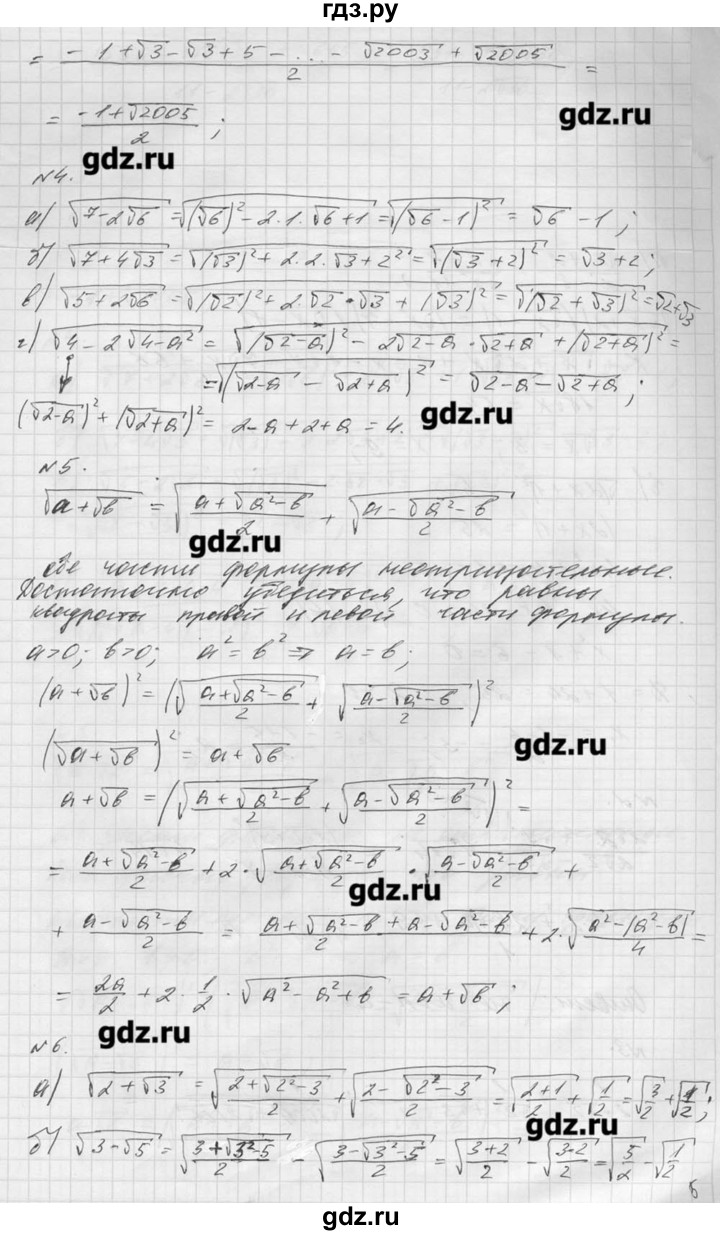 гдз.ру
= (-1 + √3 - √3 + 5 - ... - √2003 + √2005)/2 =
= (-1 + √2005)/2 ;
gdz.ru
gdz.ru
№4.
а) √(7 - 2√6) = √((√6)² - 2·1·√6 + 1) = √((√6 - 1)²) = √6 - 1 ;
б) √(7 + 4√3) = √((√3)² + 2·2·√3 + 2²) = √((√3 + 2)²) = √3 + 2 ;
в) √(5 + 2√6) = √((√2)² + 2·√2·√3 + (√3)²) = √((√2 + √3)²) = √2+√3
г) √(4 - 2√(4 - a²)) = √((√(2-a))² - 2√(2-a)·√(2+a) + (√(2+a))²) =
= √((√(2-a) - √(2+a))²) = √(2-a) - √(2+a) ;
(√(2-a))² + (√(2+a))² = 2 - a + 2 + a = 4.
gdz.ru
№5.
√(a + √b) = √((a + √(a² - b))/2) + √((a - √(a² - b))/2)
gdz.ru
обе части формулы неотрицательные.
Достаточно убедиться, что равны
квадраты правой и левой части формулы.
a>0; b>0; a² = b² ⇒ a = b ;
(a + √b)² = (√((a + √(a² - b))/2) + √((a - √(a² - b))/2))²
(√(a + √b))² = a + √b
gdz.ru
a + √b = (√((a + √(a² - b))/2) + √((a - √(a² - b))/2))² =
= (a + √(a² - b))/2 + 2·√((a + √(a² - b))/2) · √((a - √(a² - b))/2) +
gdz.ru
+ (a - √(a² - b))/2 = (a + √(a² - b) + a - √(a² - b))/2 + 2·√((a² - (a² - b))/4) =
= 2a/2 + 2·1/2·√(a² - a² + b) = a + √b ;
gdz.ru
№6.
а) √(2 + √3) = √((2 + √(2² - 3))/2) + √((2 - √(2² - 3))/2) = √((2+1)/2) + √(1/2) = √(3/2) + √(1/2) ;
gdz.ru
б) √(3 - √5) = √((3 + √(3² - 5))/2) - √((3 - √(3² - 5))/2) = √((3+2)/2) - √((3-2)/2) = √(5/2) - √(1/2)
6
gdz.ru